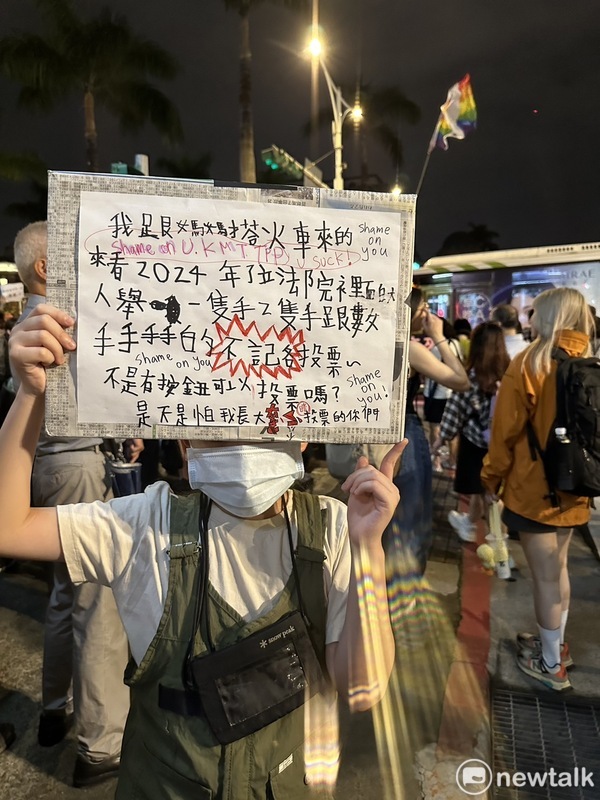 我跟媽媽搭火車來的
shame on you
shame on U. KMT TPP U SUCK!
來看2024年立法院裡面大
人舉一隻手2隻手跟數
手手手手的不記名投票~
shame on you
不是有按鈕可以投票嗎?
shame on you!
是不是怕我長大 投票的你們
snow peak
newtalk